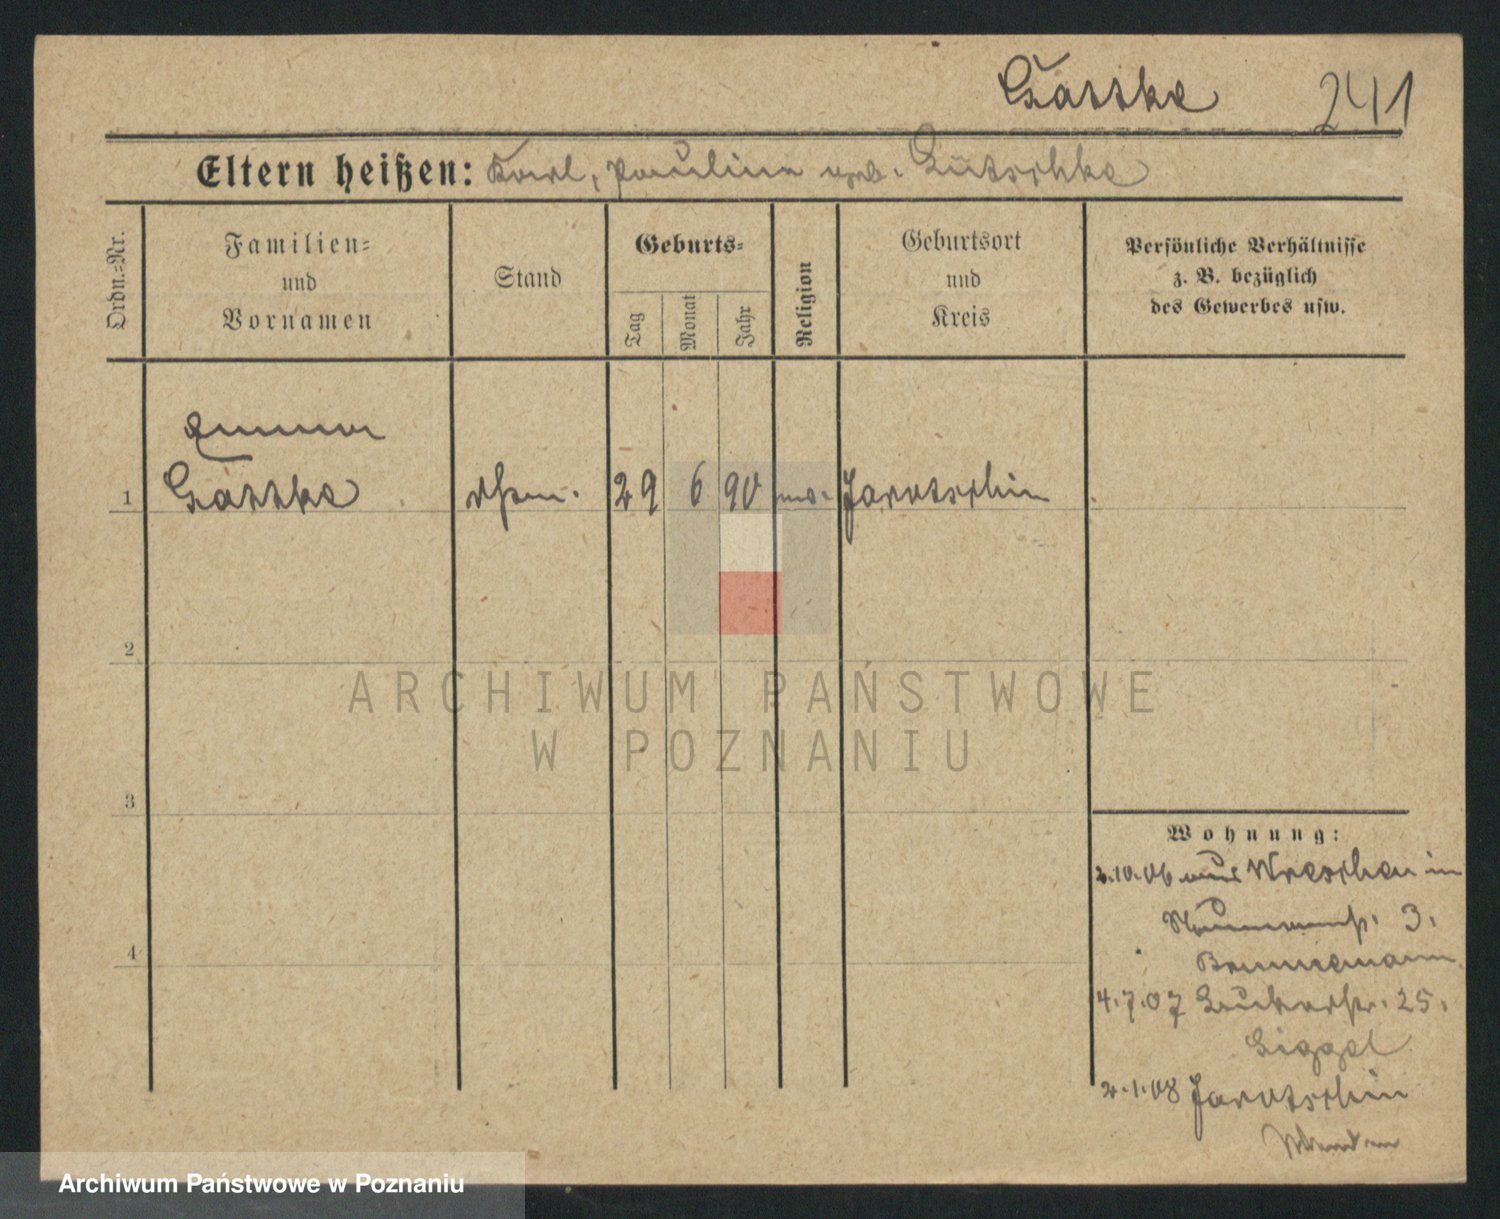 Gasske 241
Eltern heißen: Karl, Pauline geb. Lutschke
Ordn.-Nr.
Familien-
und
Vornamen
Stand
Geburts-
Tag
Monat
Jahr
Religion
Geburtsort
und
Kreis
Persönliche Verhältnisse
z. B. bezüglich
des Gewerbes usw.
Emma
1 Gasske 29 6 90 Jarotschin
2
3
4
Wohnung:
2.10.06 aus Wreschen in
3.
Brunnemann
4.7.07 25.
Giggel
2.1.08 Jarotschin
ARCHIWUM PAŃSTWOWE
W POZNANIU
Archiwum Państwowe w Poznaniu